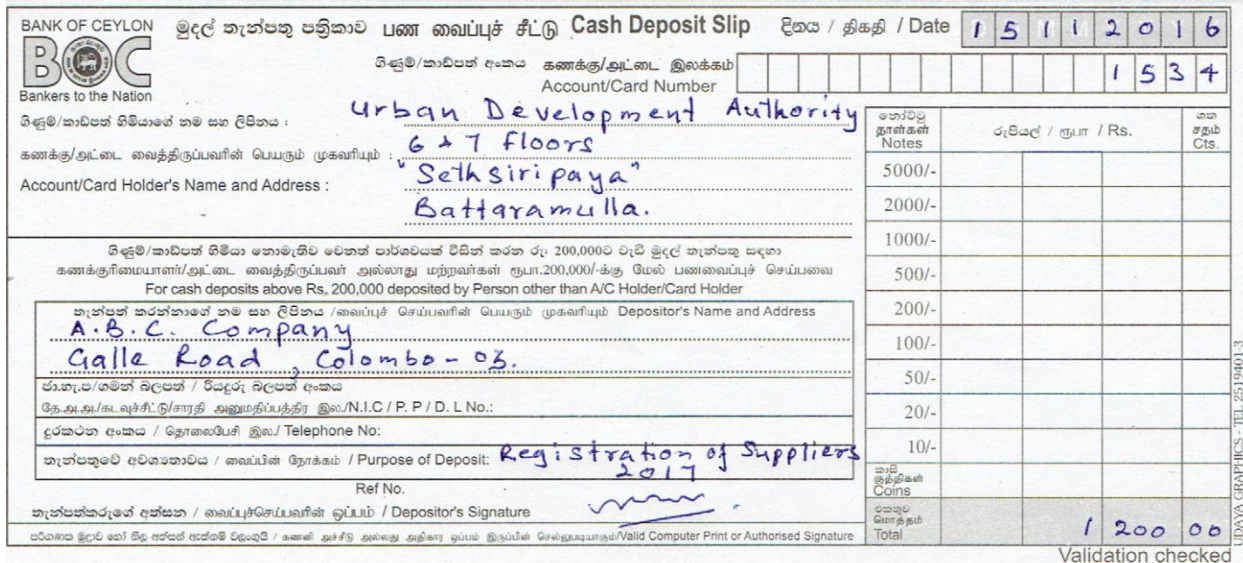 BANK OF CEYLON
BOC
Bankers to the Nation
මුදල් තැන්පතු පත්‍රිකාව பண வைப்புச் சீட்டு Cash Deposit Slip
දිනය / திகதி / Date 1 5 1 1 2 0 1 6
ගිණුම්/කාඩ්පත් අංකය கணக்கு/அட்டை இலக்கம்
Account/Card Number 1 5 3 4
ගිණුම්/කාඩ්පත් හිමියාගේ නම සහ ලිපිනය :
கணக்கு/அட்டை வைத்திருப்பவரின் பெயரும் முகவரியும் :
Account/Card Holder's Name and Address :
Urban Development Authority
6 & 7 Floors
"Sethsiripaya"
Battaramulla.
ගිණුම්/කාඩ්පත් හිමියා නොමැතිව වෙනත් පාර්ශවයක් විසින් කරන රු: 200,000ට වැඩි මුදල් තැන්පතු සඳහා
கணக்குரிமையாளர்/அட்டை வைத்திருப்பவர் அல்லாது மற்றவர்கள் ரூபா.200,000/-க்கு மேல் பணவைப்புச் செய்பவை
For cash deposits above Rs, 200,000 deposited by Person other than A/C Holder/Card Holder
තැන්පත් කරන්නාගේ නම සහ ලිපිනය /வைப்புச் செய்பவரின் பெயரும் முகவரியும் Depositor's Name and Address
A.B.C. Company
Galle Road, Colombo - 03.
ජා.හැ.ප/ගමන් බලපත් / රියදුරු බලපත් අංකය
தே.அ.அ./கடவுச்சீட்டு/சாரதி அனுமதிப்பத்திர இல./N.I.C / P. P / D. L No.:
දුරකථන අංකය / தொலைபேசி இல./ Telephone No:
තැන්පතුවේ අවශ්‍යතාවය / வைப்பின் நோக்கம் / Purpose of Deposit: Registration of Suppliers
2017
Ref No.
තැන්පත්කරුගේ අත්සන / வைப்புச்செய்பவரின் ஒப்பம் / Depositor's Signature
පරිගණක මුද්‍රාව හෝ නිල අත්සන් ඇත්නම් වලංගුයි / கணனி அச்சீடு அல்லது அதிகார ஒப்பம் இருப்பின் செல்லுபடியாகும்/Valid Computer Print or Authorised Signature
නෝට්ටු
தாள்கள்
Notes
රුපියල් / ரூபா / Rs.
ශත
சதம்
Cts.
5000/-
2000/-
1000/-
500/-
200/-
100/-
50/-
20/-
10/-
කාසි
குத்திகள்
Coins
එකතුව
மொத்தம்
Total 1 200 00
Validation checked
UDAYA GRAPHICS - TEL 2519401-3